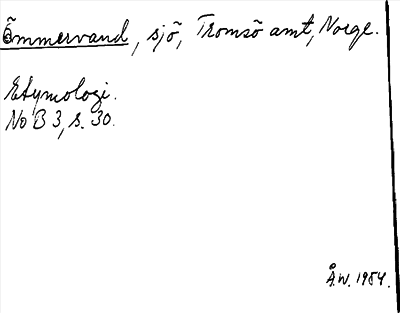 Ömmervand, sjö, Tromsö amt, Norge.
Etymologi.
NoB 3, s. 30.
Å.W. 1954.